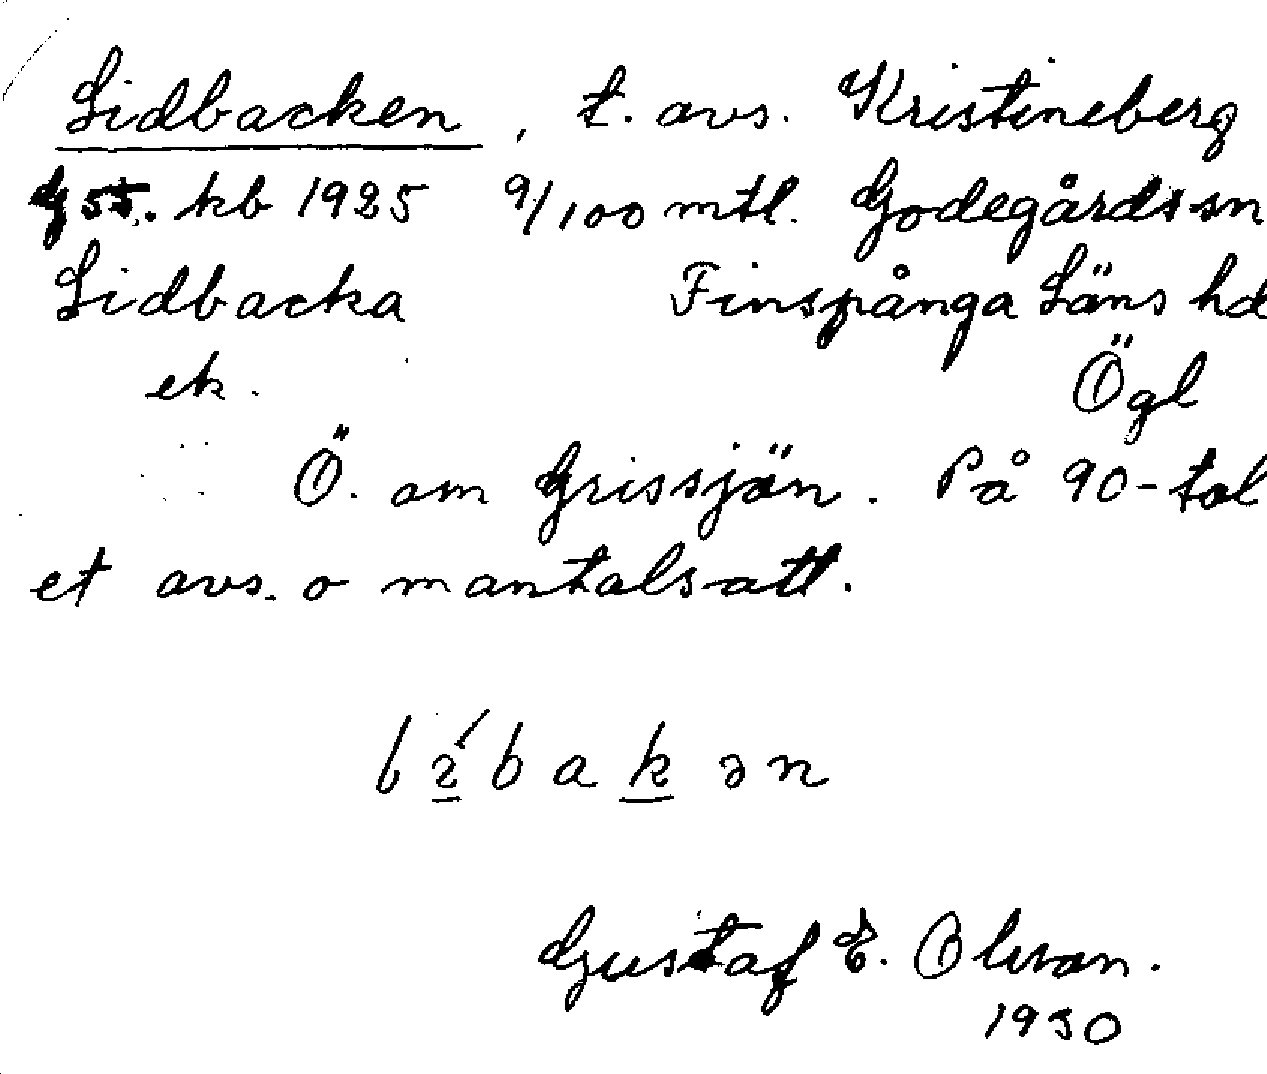 Lidbacken, t. avs. Kristineberg
G 55. kb 1925 9/100 mtl. Godegårds sn
Lidbacka Finspånga Läns hd
ek. Ögl
Ö. om Grissjön. På 90-tal
et avs. o mantalsatt.
Gustaf E. Olsson.
1930